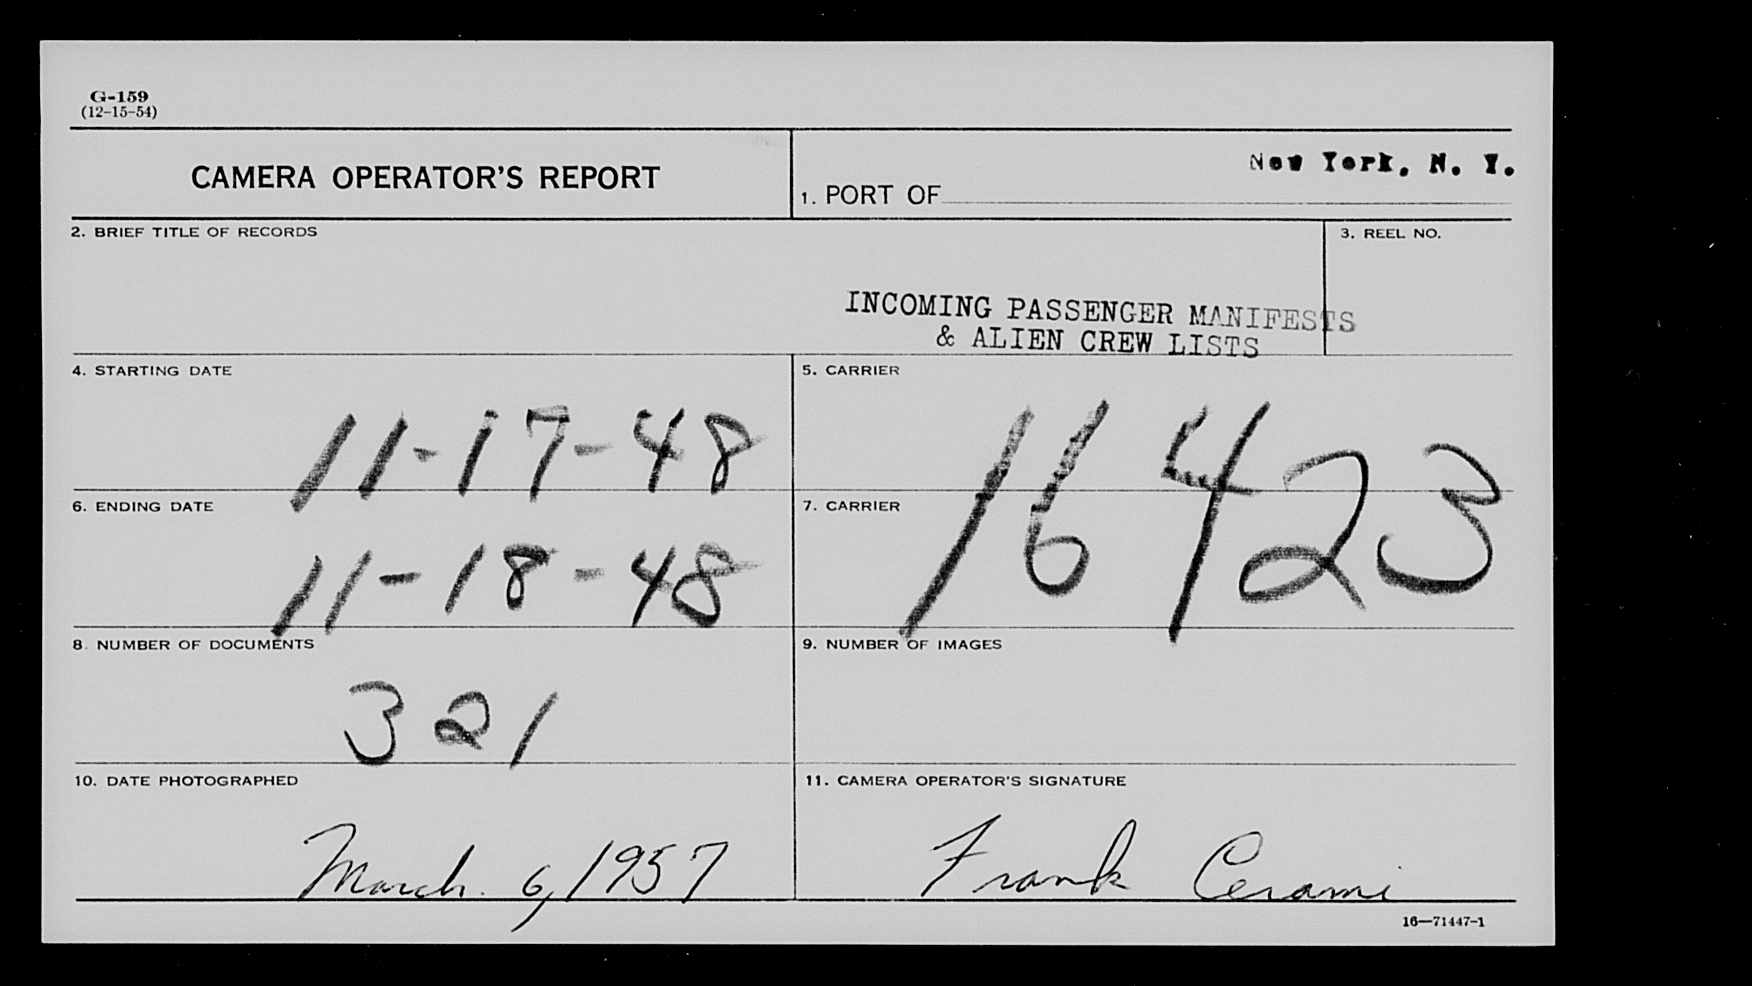 G-159
(12-15-54)
CAMERA OPERATOR'S REPORT
1. PORT OF New York, N. Y.
2. BRIEF TITLE OF RECORDS
3. REEL NO.
INCOMING PASSENGER MANIFESTS
& ALIEN CREW LISTS
4. STARTING DATE
11-17-48
5. CARRIER
16423
6. ENDING DATE
11-18-48
7. CARRIER
8. NUMBER OF DOCUMENTS
321
9. NUMBER OF IMAGES
10. DATE PHOTOGRAPHED
March 6, 1957
11. CAMERA OPERATOR'S SIGNATURE
Frank Cerami
16—71447-1